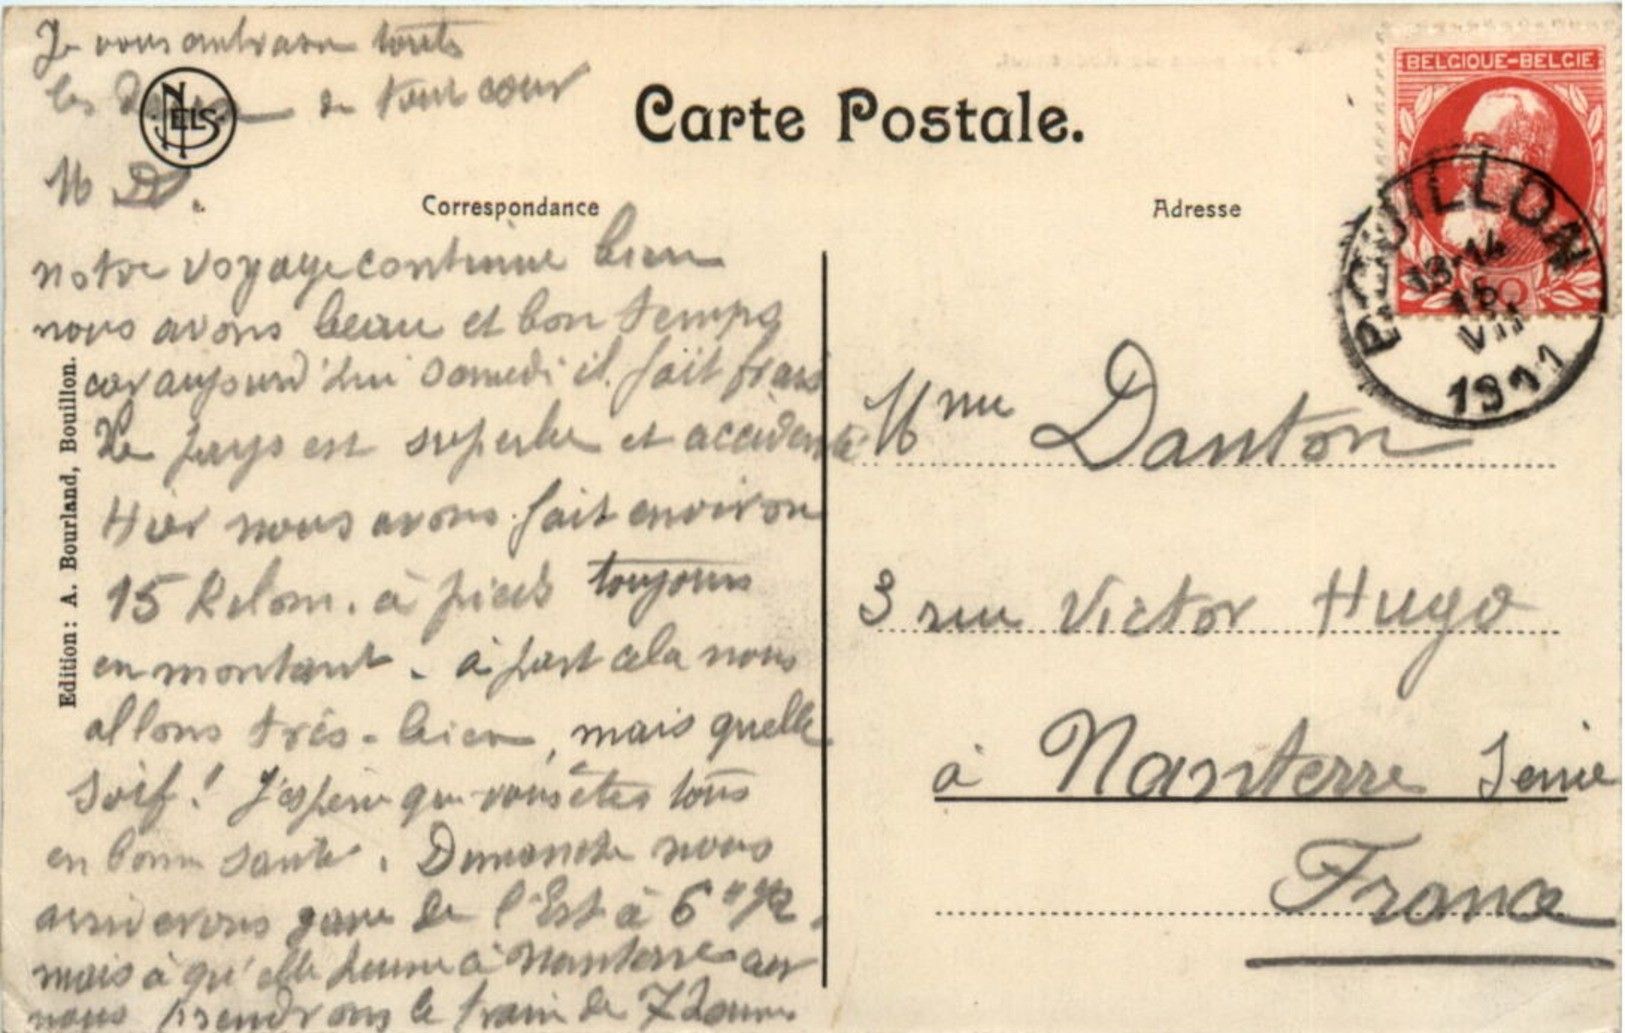 Je vous embrasse touts
les deux de tout cœur
M D.
NELS
Carte Postale.
Correspondance
Adresse
BELGIQUE-BELGIE
BOUILLON
13-14
15
VII
1911
notre voyage continue bien
nous avons beau et bon temps
car aujourd'hui samedi il fait frais
Le pays est superbe et accidenté
Hier nous avons fait environ
15 kilom. à pieds toujours
en montant. à part cela nous
allons très-bien, mais quelle
soif! J'espère que vous êtes tous
en bonne santé. Dimanche nous
arriverons gare de l'Est à 6 h 1/2,
mais à qu'elle heure à Nanterre car
nous prendrons le train de 7 heures
Edition: A. Bourland, Bouillon.
Mme Danton
3 rue Victor Hugo
à Nanterre Seine
France